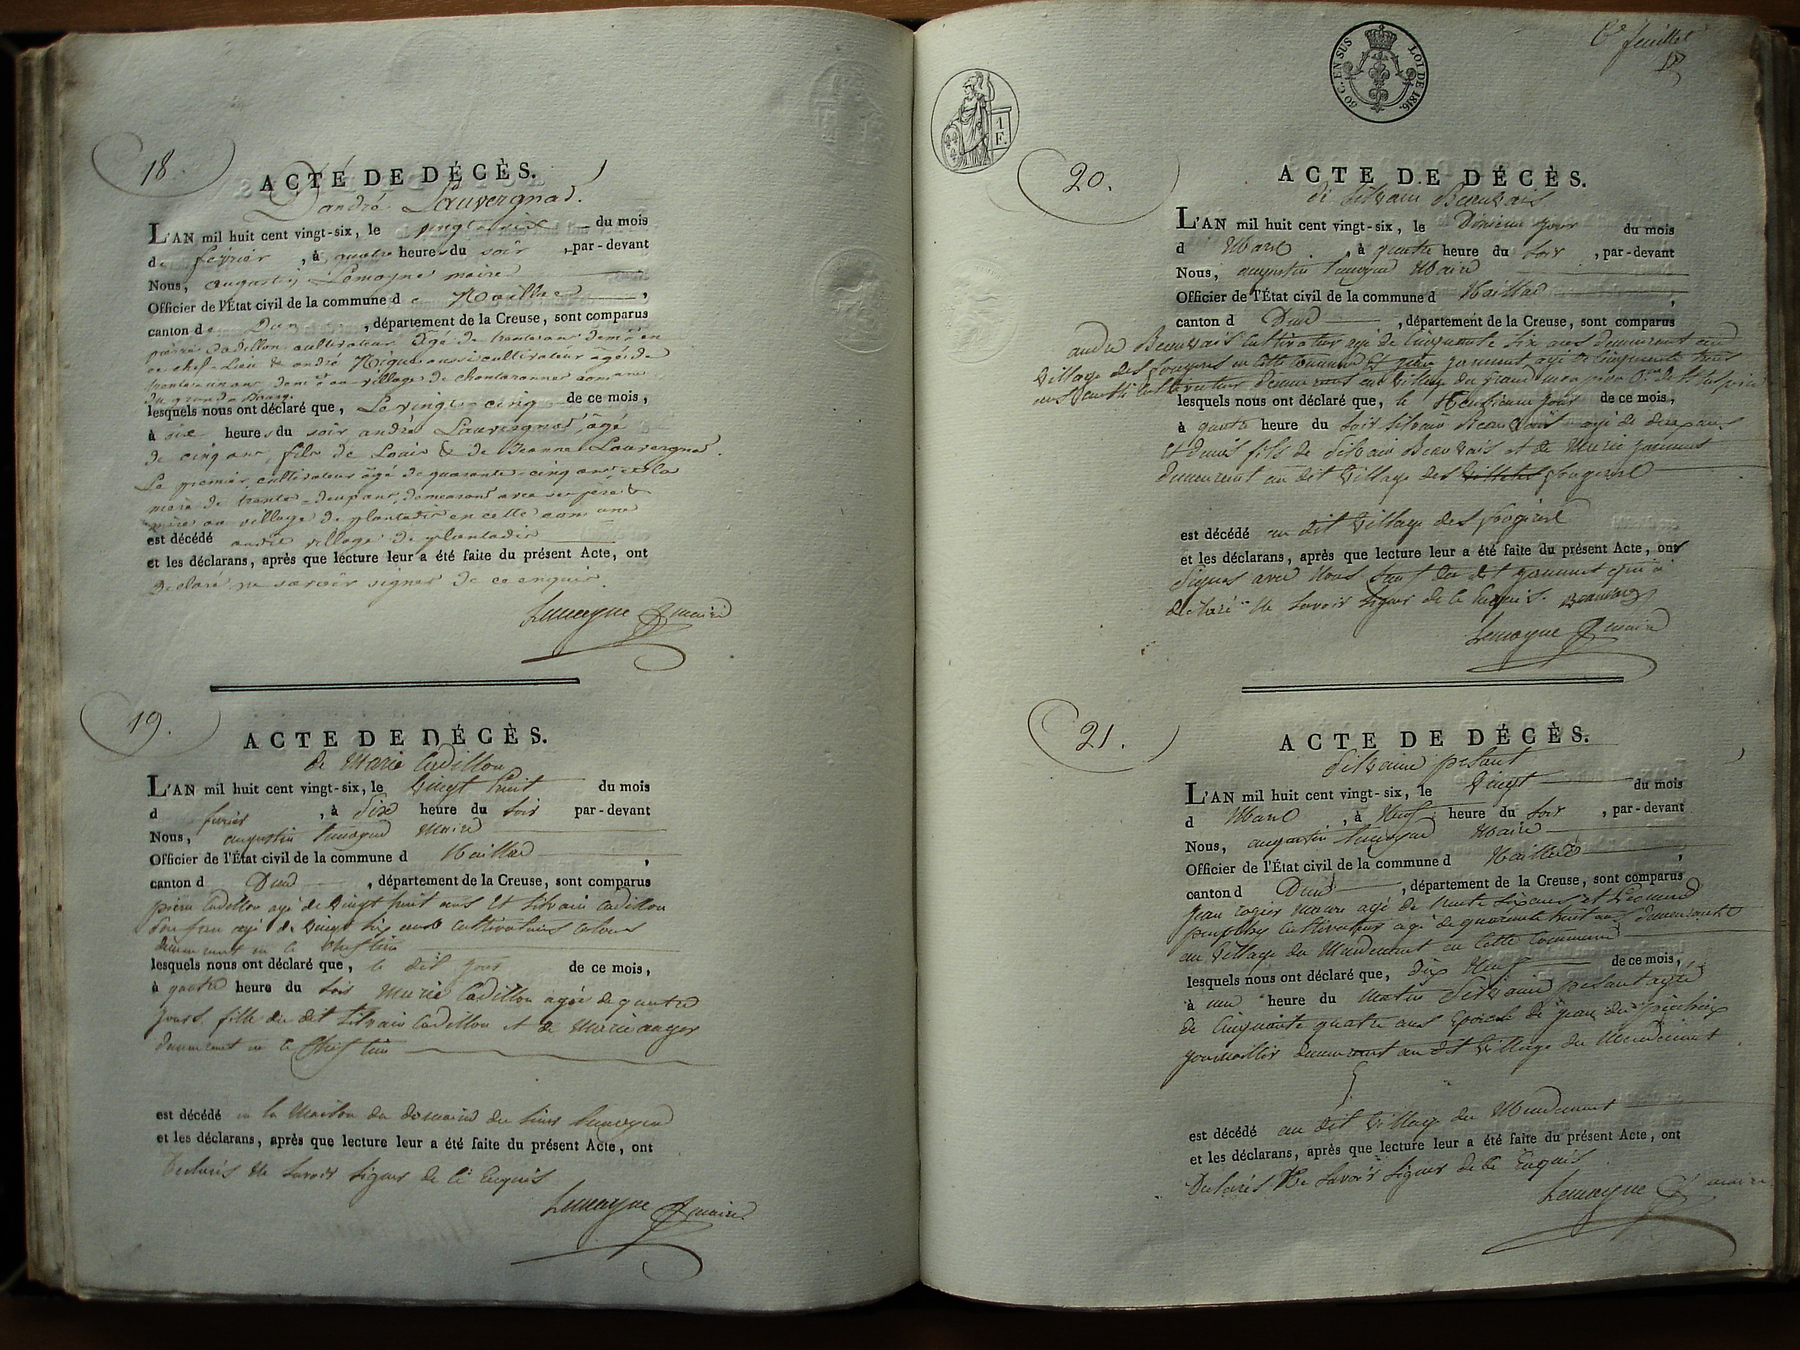 18.
ACTE DE DÉCÈS.
D'andré Lauvergnat.
L'AN mil huit cent vingt-six, le vingt-six du mois
de février, à quatre heures du soir, par-devant
Nous, augustin Lemoyne maire
Officier de l'État civil de la commune de Naillat,
canton de Dun, département de la Creuse, sont comparus
pierre Cadillon cultivateur âgé de trente ans dem.t en
ce chef-Lieu & andré aussi cultivateur âgé de
dem.t au village de commune
du grand Bourg.
lesquels nous ont déclaré que, Le vingt-cinq de ce mois,
à six heures du soir andré Lauvergnat, âgé
de cinq ans, fils de Louis & de Jeanne Lauvergnat.
Le premier, cultivateur âgé de quarante-cinq ans et la
mère de trente-deux ans, demeurant avec ses père &
mère au village de plantadis en cette commune
est décédé audit village de plantadis
et les déclarans, après que lecture leur a été faite du présent Acte, ont
Déclaré ne savoir signer de ce enquis.
Lemoyne maire
19.
ACTE DE DÉCÈS.
de Marie Cadillon
L'AN mil huit cent vingt-six, le Vingt huit du mois
d fevrier, à Six heure du Soir par-devant
Nous, augustin Lemoyne Maire
Officier de l'État civil de la commune d Naillat,
canton d Dun, département de la Creuse, sont comparus
pierre Cadillon agé de Vingt huit ans Et Silvain Cadillon
Son frere agé de Vingt Six ans Cultivateurs Colons
demeurant en ce Chef lieu
lesquels nous ont déclaré que, le dit jour de ce mois,
à quatre heure du Soir Marie Cadillon agée de quatre
jours fille du dit Silvain Cadillon et de Marie auger
demeurant en ce Chef lieu
est décédé en la Maison du domaine du Sieur Lemoyne
et les déclarans, après que lecture leur a été faite du présent Acte, ont
Declarés Ne Savoir Signer de Ce Enquis
Lemoyne maire
6e feuillet
50 C. EN SUS LOI DE 1816.
1 F.
20.
ACTE DE DÉCÈS.
de Silvain Beauvais
L'AN mil huit cent vingt-six, le jour du mois
d Mars, à quatre heure du Soir, par-devant
Nous, augustin Lemoyne Maire
Officier de l'État civil de la commune d Naillat,
canton d Dun, département de la Creuse, sont comparus
andré Beauvais Cultivateur agé de Cinquante Six ans demeurant au
Village des fougeres en Cette Commune Et jammet agé de Cinquante trois
ans aussi Cultivateur demeurant au Village du grand
lesquels nous ont déclaré que, le jour de ce mois,
à quatre heure du Soir Silvain Beauvais agé de deux ans
Et demis fils de Silvain Beauvais et de Marie jammet
demeurant au dit Village des fougeres
est décédé au dit Village des fougeres
et les déclarans, après que lecture leur a été faite du présent Acte, ont
Signés avec Nous Sauf du dit jammet qui a
declaré Ne Savoir Signer de Ce Enquis. Beauvais
Lemoyne maire
21.
ACTE DE DÉCÈS.
Silvaine pesant
L'AN mil huit cent vingt-six, le Vingt du mois
d Mars, à Neuf heure du Soir, par-devant
Nous, augustin Lemoyne Maire
Officier de l'État civil de la commune d Naillat,
canton d Dun, département de la Creuse, sont comparus
jean agé de trente Six ans et Leonard
Cultivateur agé de quarante huit ans demeurants
au Village du Mondement en Cette Commune
lesquels nous ont déclaré que, dix Neuf de ce mois,
à une heure du Matin Silvaine pesant agée
de Cinquante quatre ans Epouse de jean
journallier demeurant au dit Village du Mondement
est décédé au dit Village du Mondement
et les déclarans, après que lecture leur a été faite du présent Acte, ont
Declarés Ne Savoir Signer de Ce Enquis
Lemoyne maire